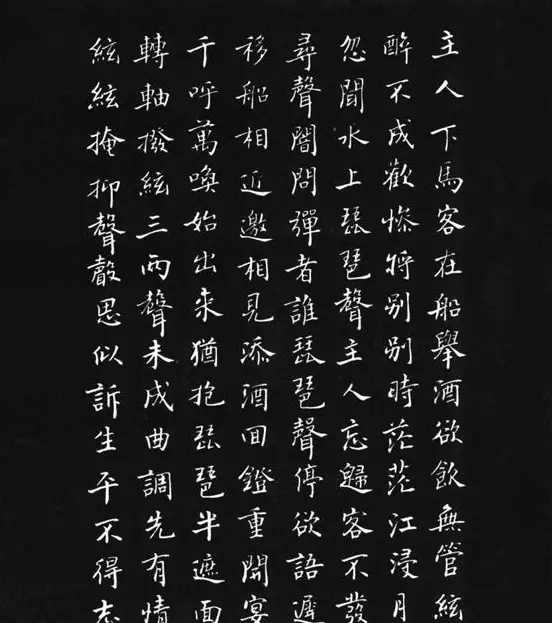 主人下馬客在船舉酒欲飲無管絃
醉不成歡慘將别别時茫茫江浸月
忽聞水上琵琶聲主人忘歸客不發
尋聲闇問彈者誰琵琶聲停欲語遲
移船相近邀相見添酒回鐙重開宴
千呼萬喚始出来猶抱琵琶半遮面
轉軸撥絃三兩聲未成曲調先有情
絃絃掩抑聲聲思似訴生平不得志